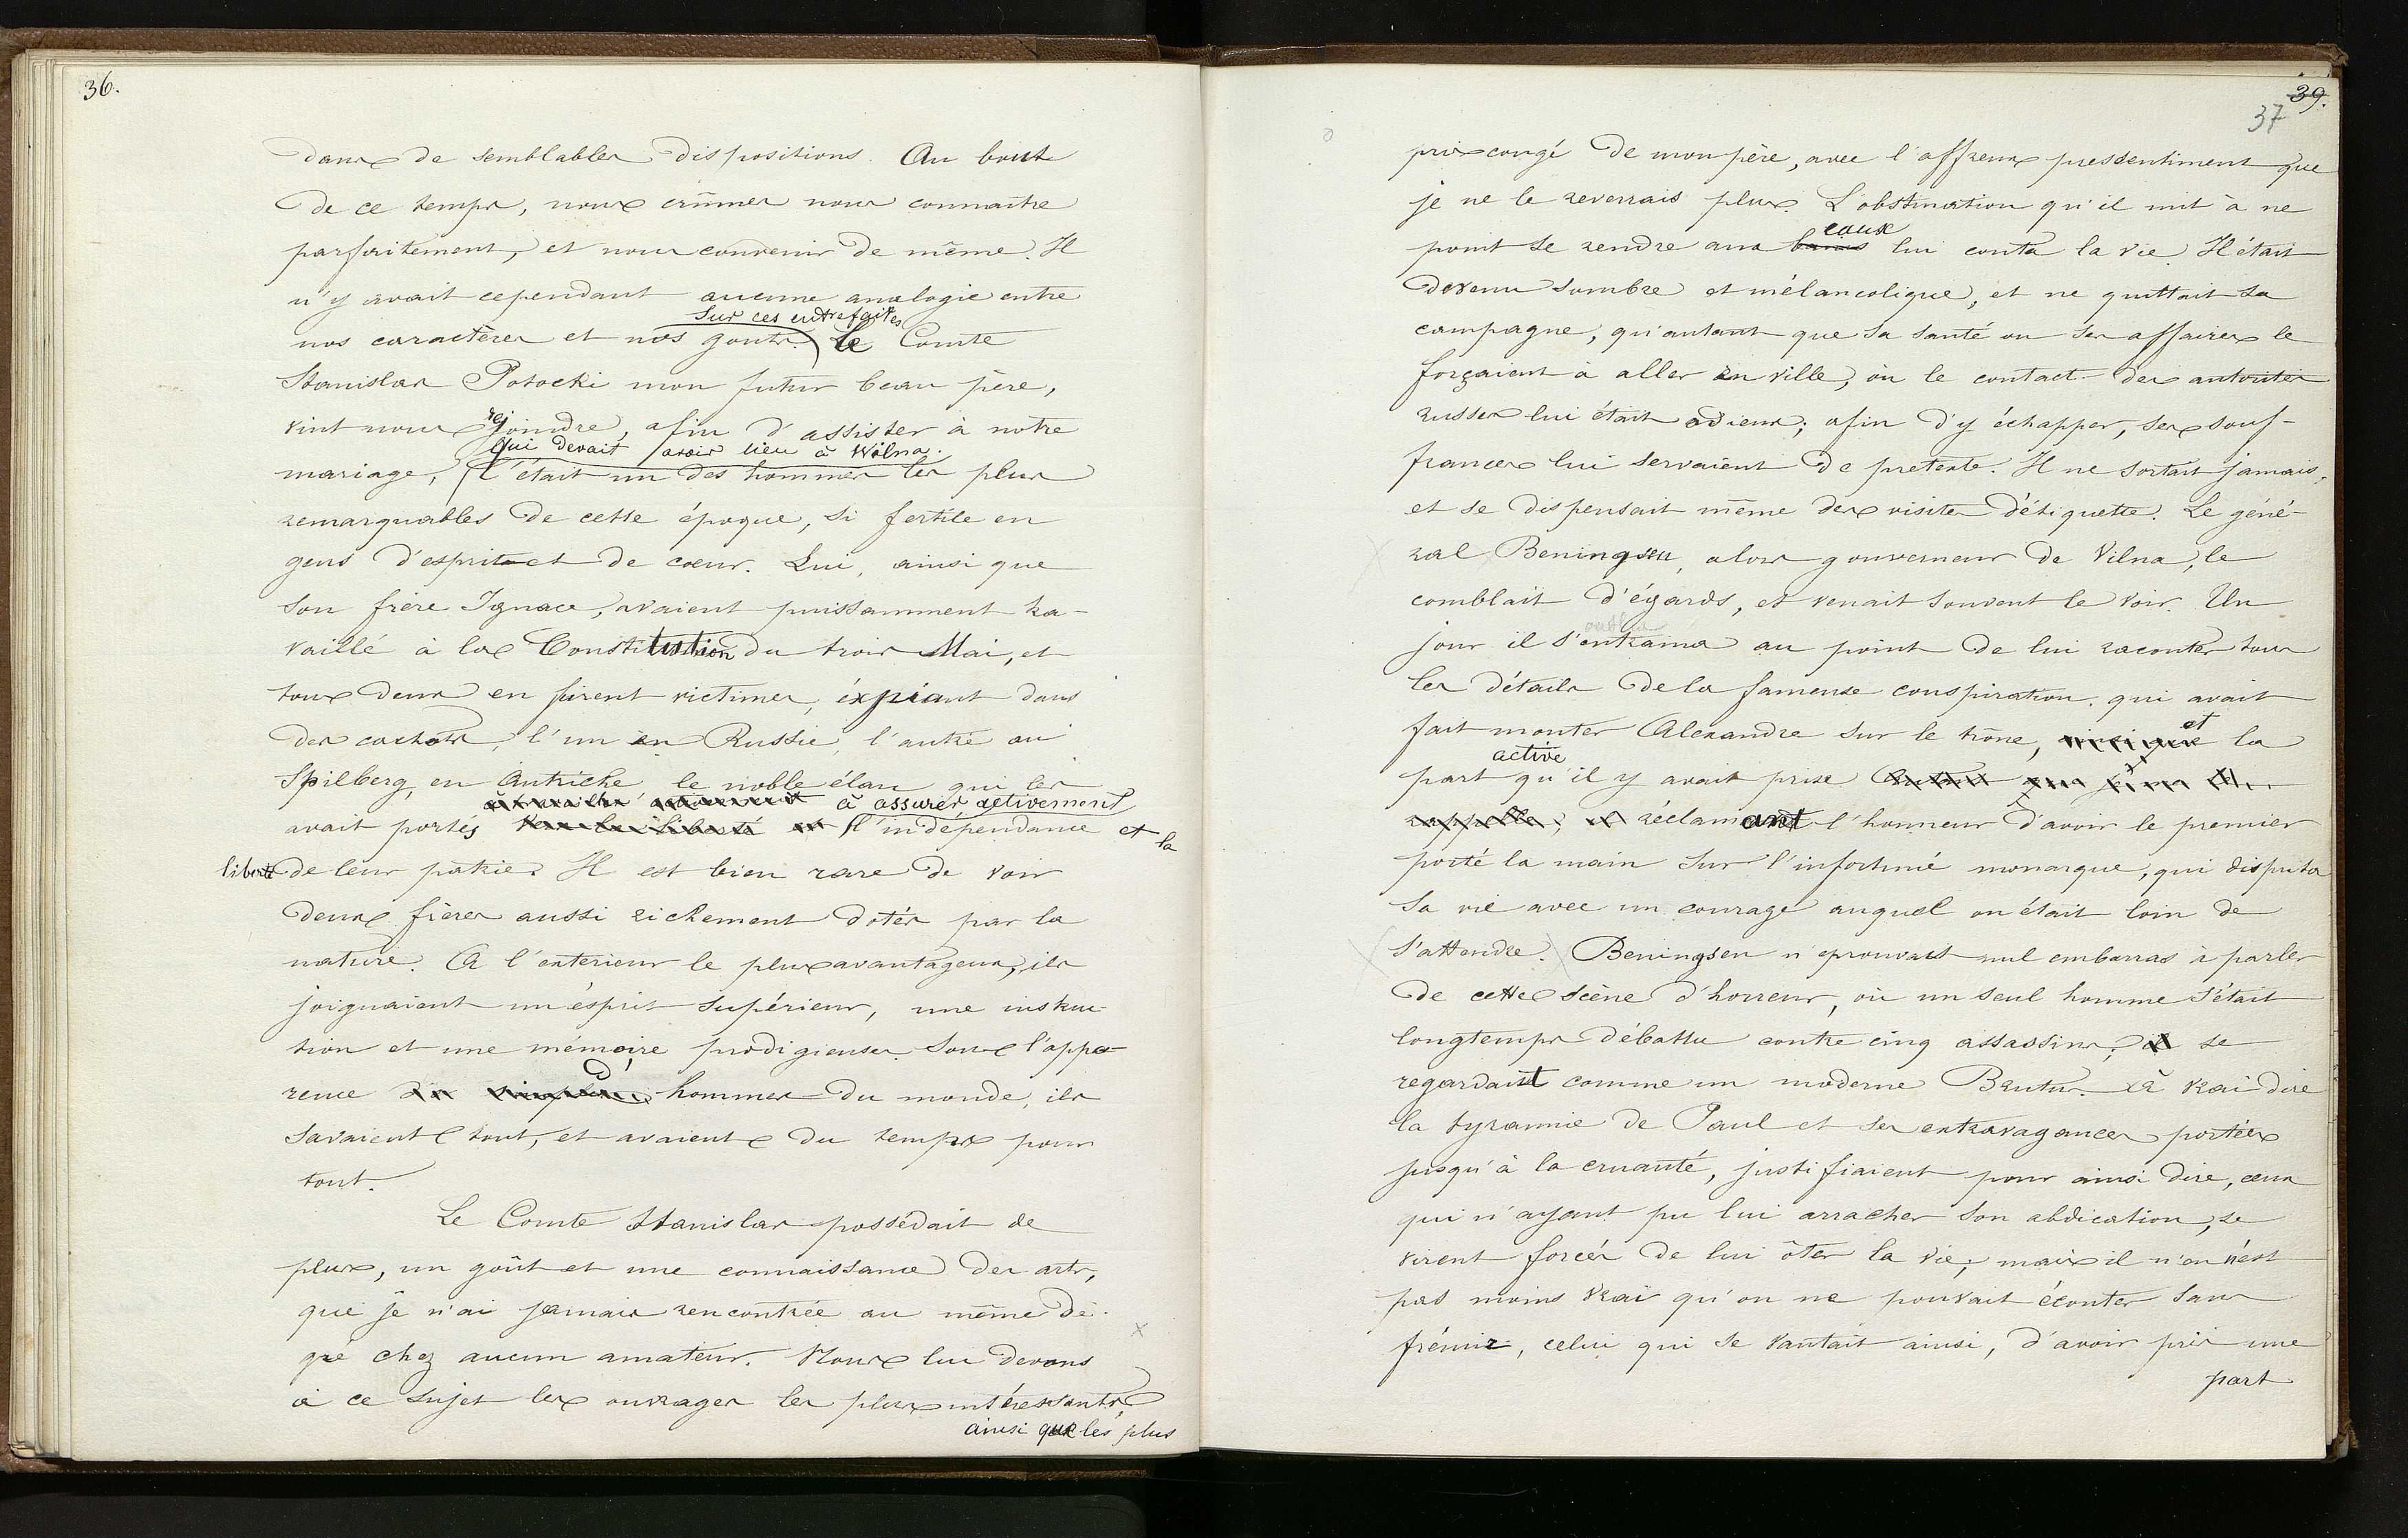 36.
dans de semblables dispositions. Au bout
de ce temps, nous crûmes nous connaître
parfaitement, et nous convenir de même. Il
n'y avait cependant aucune analogie entre
Sur ces entrefaites
nos caractères et nos gouts. Le Comte
Stanislas Potocki mon futur beau père,
vint nous rejoindre, afin d'assister à notre
qui devait avoir lieu à Wilna.
mariage, c'était un des hommes les plus
remarquables de cette époque, si fertile en
gens d'esprit et de cœur. Lui, ainsi que
son frère Ignace, avaient puissamment tra-
vaillé à la Constitution du trois Mai, et
tous deux en furent victimes, éxpiant dans
des cachots, l'un en Russie, l'autre au
Spilberg, en Autriche le noble élan qui les
à assurer activement
avait portés l'indépendance et la
liberté de leur patrie. Il est bien rare de voir
deux frères aussi richement dotés par la
nature. A l'exterieur le plus avantageux, ils
joignaient un ésprit supérieur, une instruc-
tion et une mémoire prodigieuse. Sous l'appa-
rence d'hommes du monde, ils
savaient tout, et avaient du temps pour
tout.
Le Comte Stanislas possédait de
plus, un goût et une connaissance des arts,
que je n'ai jamais rencontrée au même dé-
gré chez aucun amateur. Nous lui devons
à ce sujet les ouvrages les plus intéressants,
ainsi que les plus
39.
37
pris congé de mon père, avec l'affreux pressentiment que
je ne le reverrais plus. L'obstination qu'il mit à ne
eaux
point se rendre aux bains lui couta la vie. Il était
devenu sombre et mélancolique, et ne quittait sa
campagne, qu'autant que sa santé ou ses affaires le
forçaient à aller en ville, où le contact des autorités
russes lui était odieux; afin d'y échapper, ses souf-
frances lui servaient de pretexte. Il ne sortait jamais,
et se dispensait même des visites d'étiquette. Le géné-
ral Beningsen, alors gouverneur de Vilna, le
comblait d'égards, et venait souvent le voir. Un
oublia
jour il s'entraina au point de lui raconter tous
les détails de la fameuse conspiration qui avait
fait monter Alexandre sur le trône, et la
active
part qu'il y avait prise
réclamant l'honneur d'avoir le premier
porté la main sur l'infortuné monarque, qui disputa
sa vie avec un courage auquel on était loin de
s'attendre. Beningsen n'eprouvait nul embarras à parler
de cette scène d'horreur, où un seul homme s'était
longtemps débattu contre cinq assassins; il se
regardait comme un moderne Brutus. à vrai dire
la tyrannie de Paul et ses extravagances portées
jusqu'à la cruauté, justifiaient pour ainsi dire, ceux
qui n'ayant pu lui arracher son abdication, se
virent forcés de lui ôter la vie; mais il n'en n'est
pas moins vrai qu'on ne pouvait écouter sans
frémir, celui qui se vantait ainsi, d'avoir pris une
part